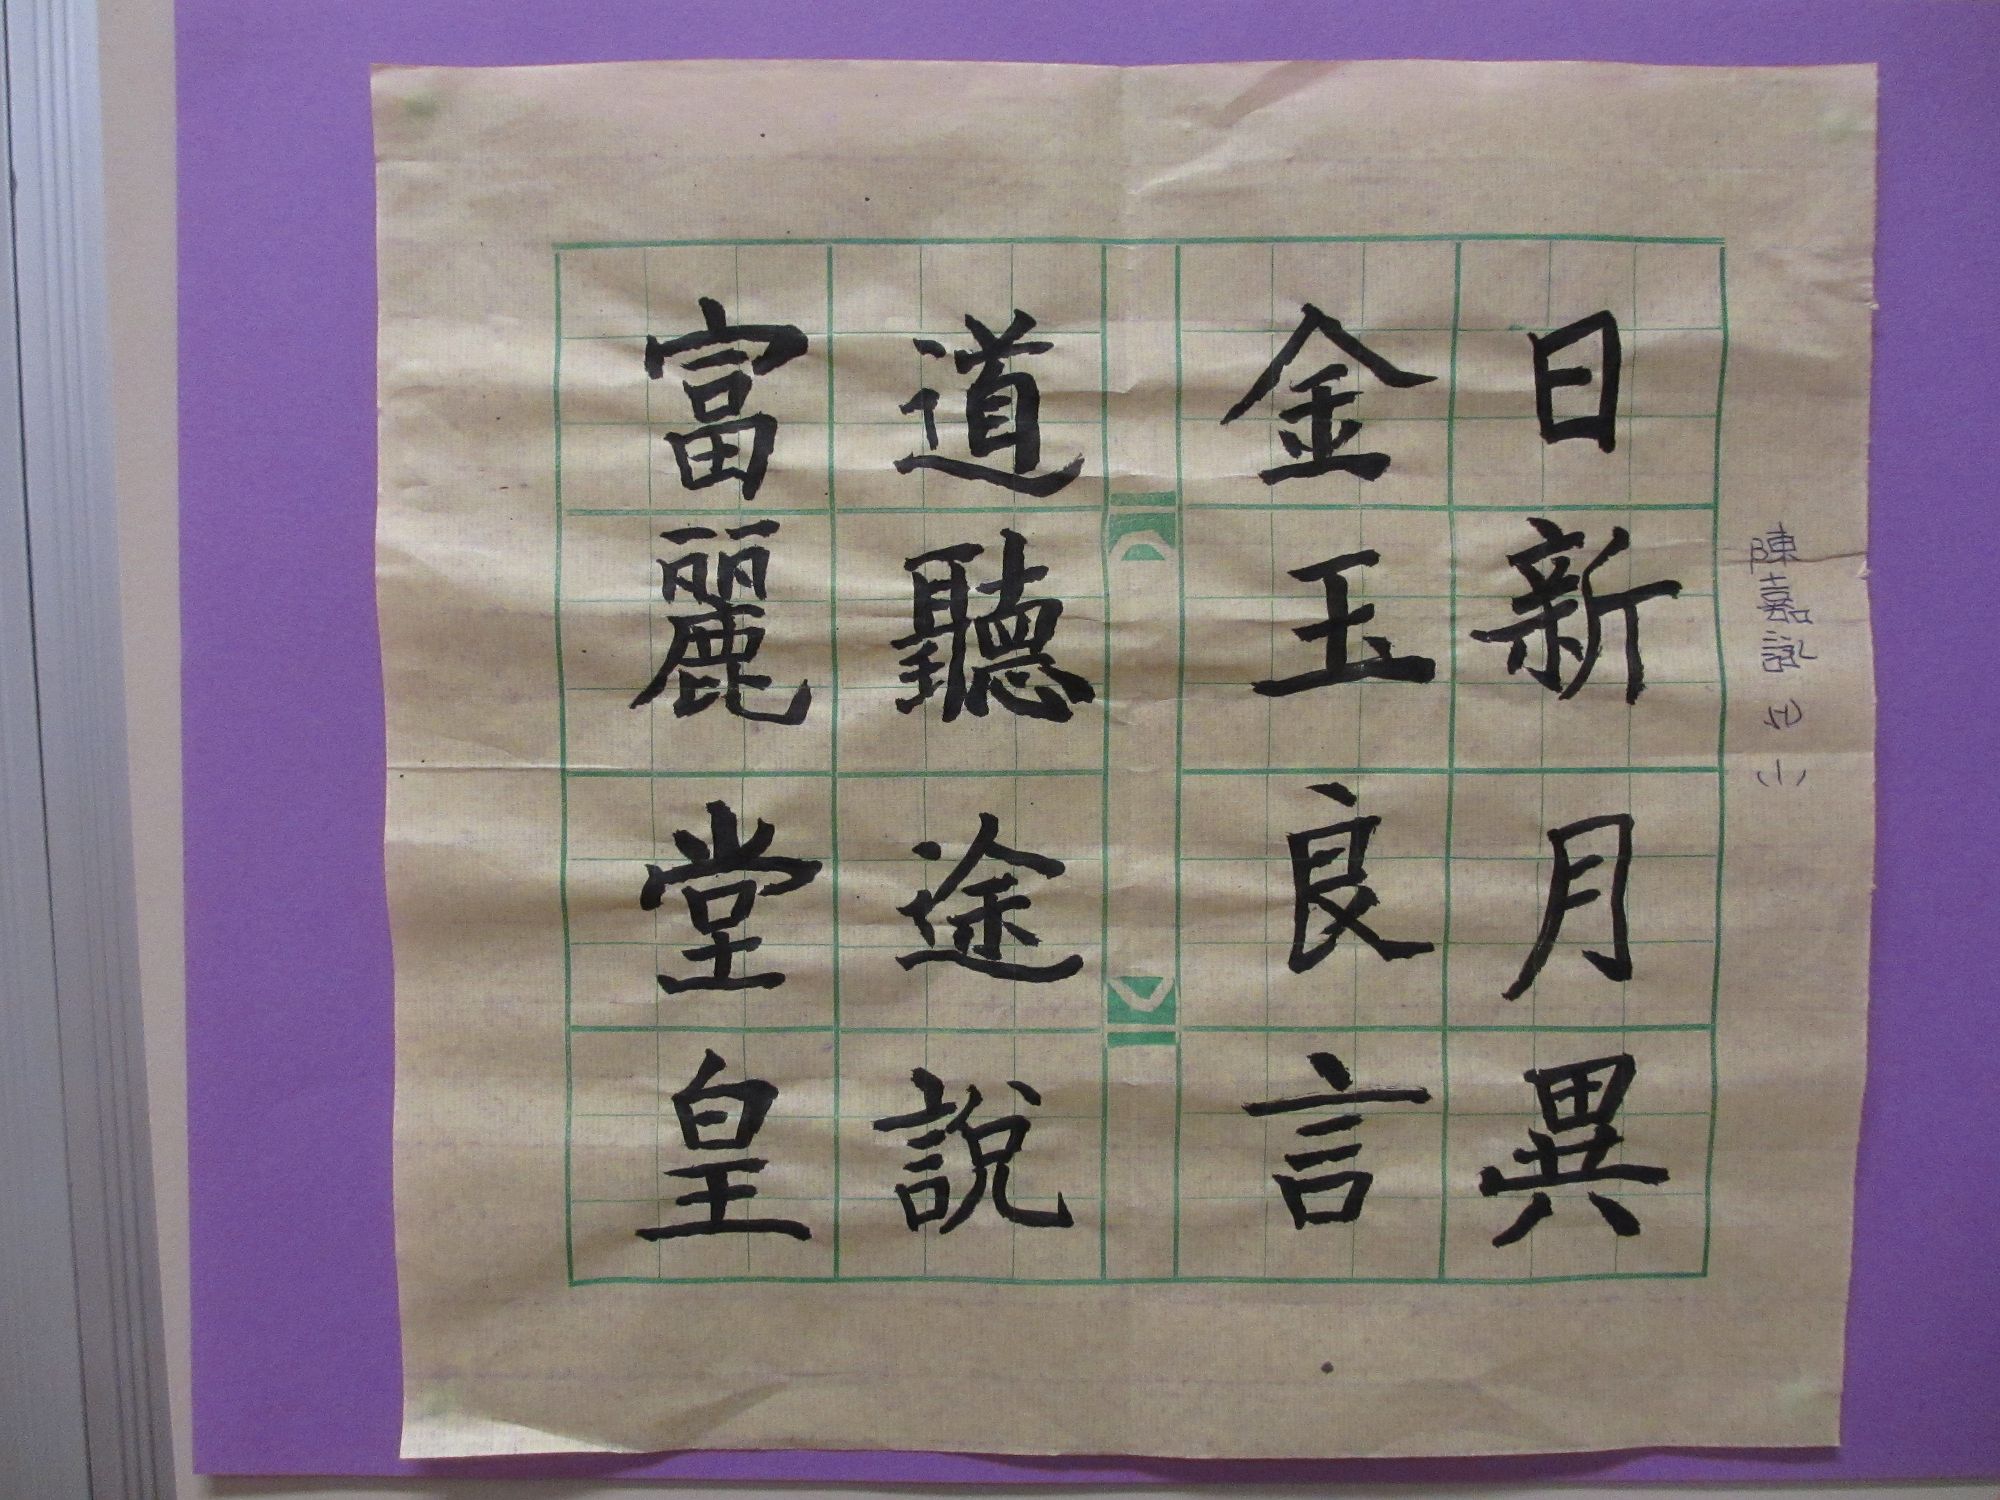 陳嘉詠 五(一)
日新月異
金玉良言
道聽途說
富麗堂皇